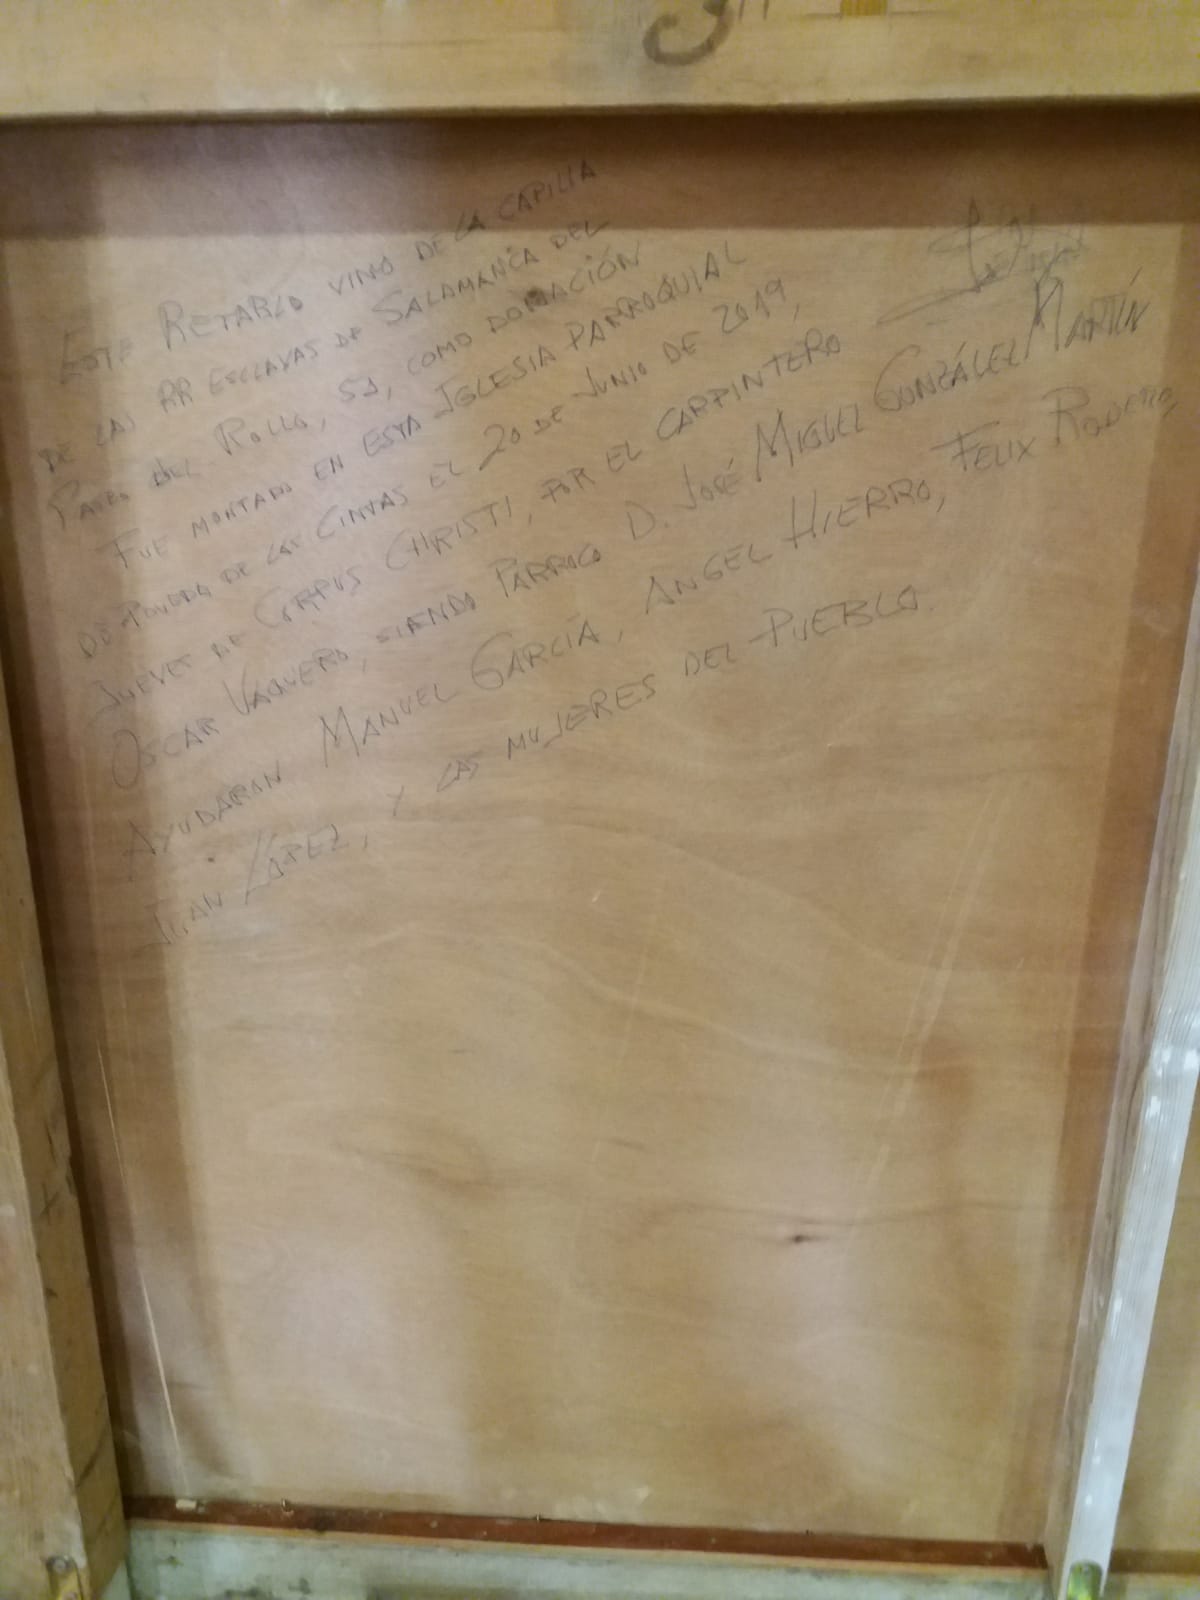 ESTE RETABLO VINO DE LA CAPILLA
DE LAS RR ESCLAVAS DE SALAMANCA DEL
PASEO DEL ROLLO, 51, COMO DONACIÓN
FUE MONTADO EN ESTA IGLESIA PARROQUIAL
DE POVEDA DE LAS CINTAS EL 20 DE JUNIO DE 2019,
JUEVES DE CORPUS CHRISTI, POR EL CARPINTERO
OSCAR VAQUERO, SIENDO PÁRROCO D. JOSÉ MIGUEL GONZÁLEZ MARTÍN
AYUDARON MANUEL GARCÍA, ANGEL HIERRO, FELIX RODERO,
JUAN LÓPEZ, Y LAS MUJERES DEL PUEBLO.